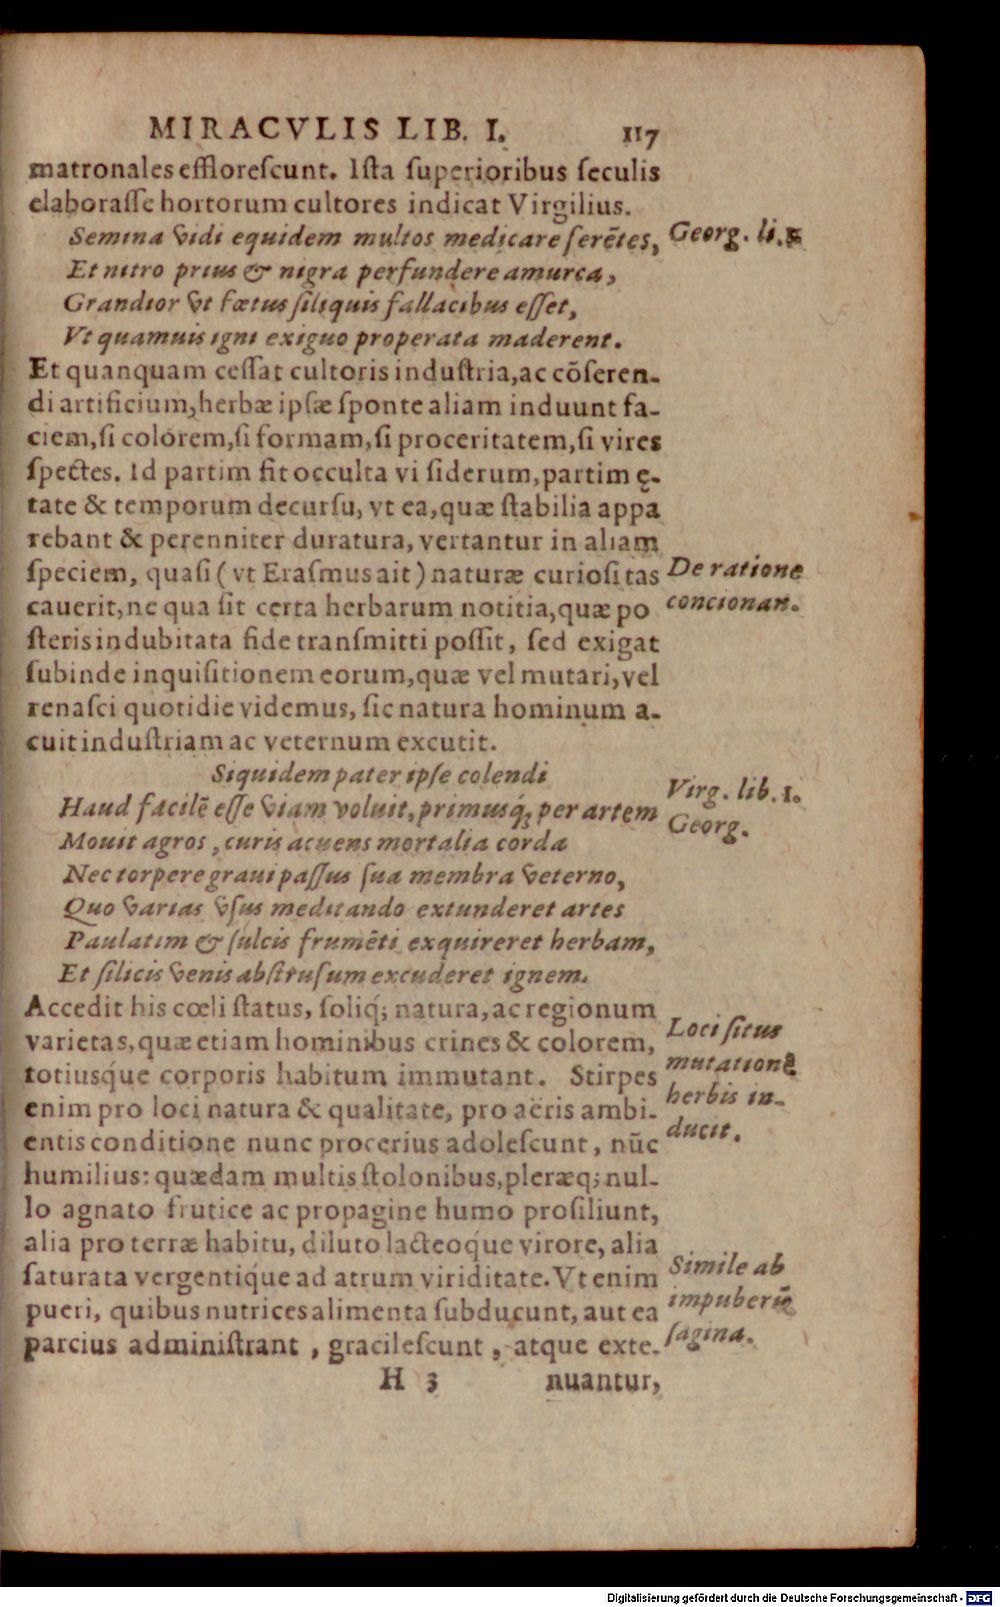 MIRACVLIS LIB. I. 117
matronales efflorescunt. Ista superioribus seculis
elaborasse hortorum cultores indicat Virgilius.
Semina vidi equidem multos medicare serētes, Georg. li.
Et nitro prius & nigra perfundere amurca,
Grandior vt fœtus siliquis fallacibus esset,
Vt quamuis igni exiguo properata maderent.
Et quanquam cessat cultoris industria, ac cōseren-
di artificium, herbæ ipsæ sponte aliam induunt fa-
ciem, si colorem, si formam, si proceritatem, si vires
spectes. Id partim fit occulta vi siderum, partim ę-
tate & temporum decursu, vt ea, quæ stabilia appa
rebant & perenniter duratura, vertantur in aliam
speciem, quasi ( vt Erasmus ait ) naturæ curiositas De ratione
cauerit, ne qua sit certa herbarum notitia, quæ po concionan.
steris indubitata fide transmitti possit, sed exigat
subinde inquisitionem eorum, quæ vel mutari, vel
renasci quotidie videmus, sic natura hominum a-
cuit industriam ac veternum excutit.
Siquidem pater ipse colendi
Haud facilē esse viam voluit, primusq́; per artem Virg. lib. 1.
Mouit agros, curis acuens mortalia corda Georg.
Nec torpere graui passus sua membra veterno,
Quo varias vsus meditando extunderet artes
Paulatim & sulcis frumēti exquireret herbam,
Et silicis venis abstrusum excuderet ignem.
Accedit his cœli status, soliq́; natura, ac regionum
varietas, quæ etiam hominibus crines & colorem, Loci situs
totiusq́ue corporis habitum immutant. Stirpes mutationē
enim pro loci natura & qualitate, pro aëris ambi- herbis in-
entis conditione nunc procerius adolescunt, nūc ducit.
humilius: quædam multis stolonibus, pleræq; nul-
lo agnato frutice ac propagine humo prosiliunt,
alia pro terræ habitu, diluto lacteoq́ue virore, alia
saturata vergentiq́ue ad atrum viriditate. Vt enim Simile ab
pueri, quibus nutrices alimenta subducunt, aut ea impuberū
parcius administrant, gracilescunt, atque exte- sagina.
H 3 nuantur,
Digitalisierung gefördert durch die Deutsche Forschungsgemeinschaft - DFG